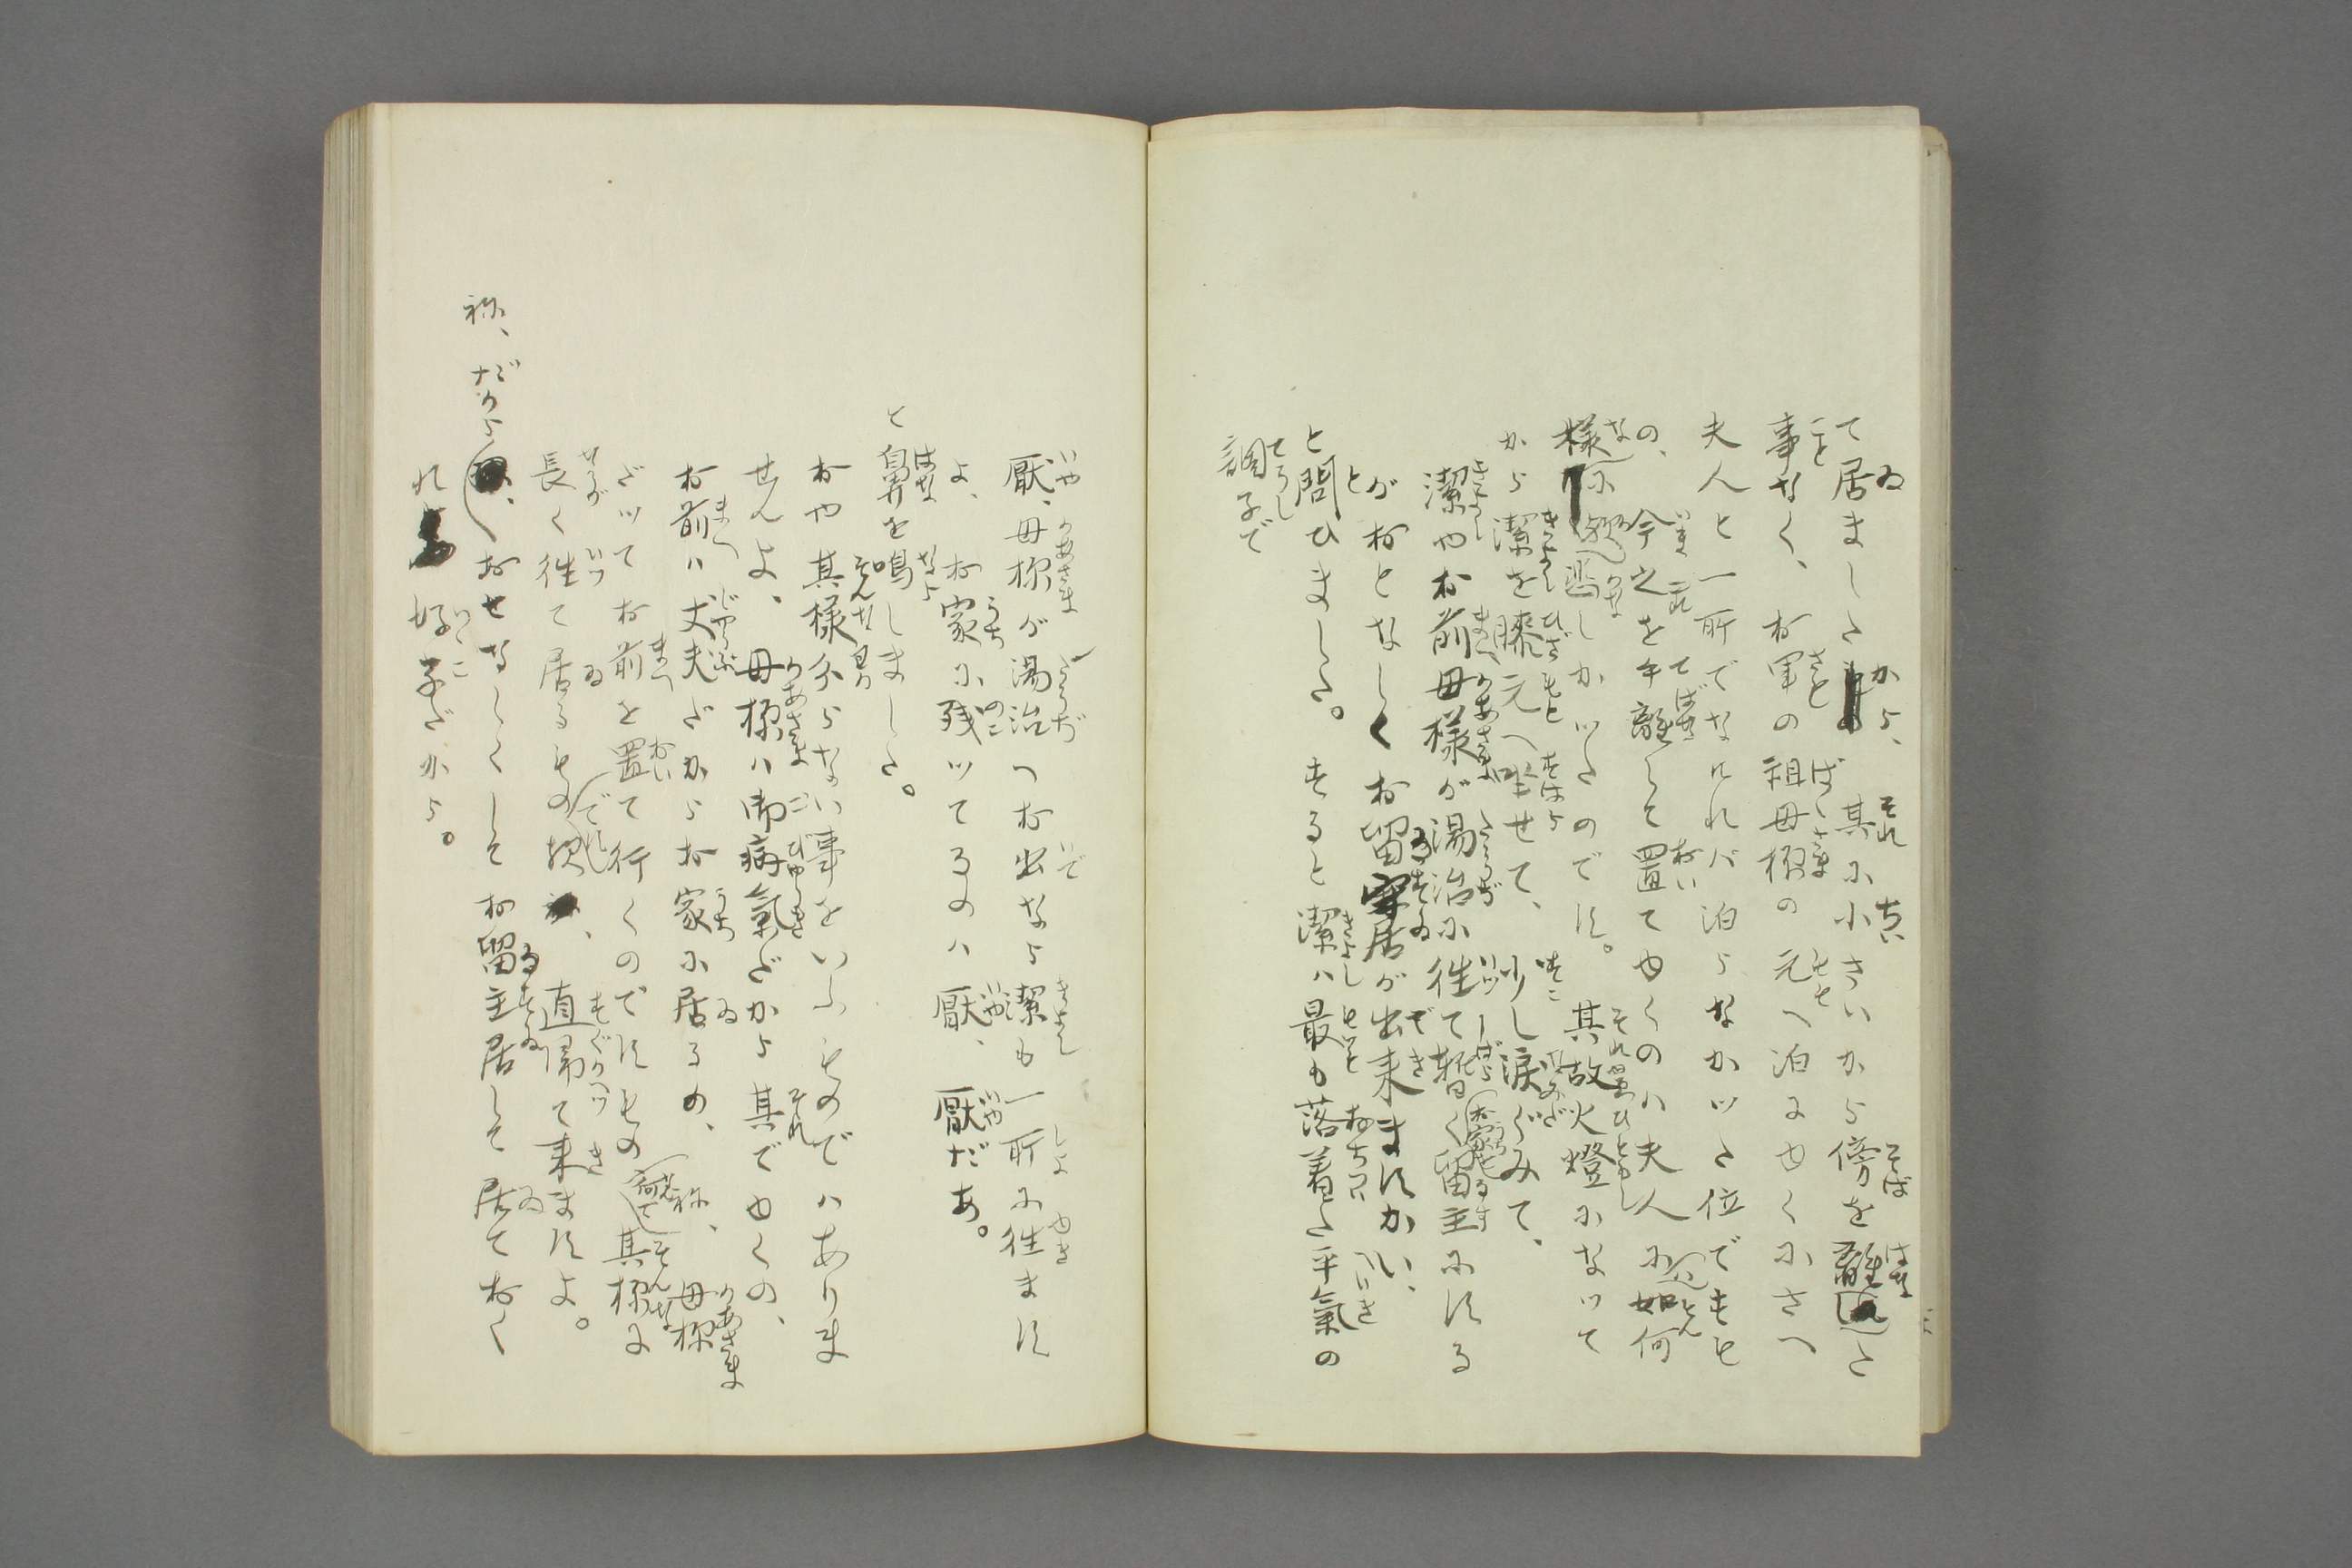 て居ましたから、其に小さいから傍を離した
事なく、お軍の祖母様の元へ泊にゆくにさへ
夫人と一所でなければ泊らなかッた位ですを
の、今之を手離して置てゆくのは夫人に如何
様に悲しかッたのです。其故火燈になッて
から潔を膝元へ坐せて、少し涙ぐみて、
潔やお前母様が湯治に往て暫く留主にする
がおとなしくお留守居が出来ますかい、
と問ひました。すると潔は最も落着た平氣の
調子で
厭、母様が湯治へお出なら潔も一所に往ます
よ、お家に残ッてるのは厭、厭だあ。
と鼻を鳴しました。
おや其様分らない事をいふものではありま
せんよ、母様は御病氣だから其でゆくの、
お前は丈夫だからお家に居るの、ね、母様
だッてお前を置て行くのですもの何で其様に
長く往て居るもの、直帰て来ますよ。
ね、だからおとなしくしてお留主居して居ておく
れ好子だから。